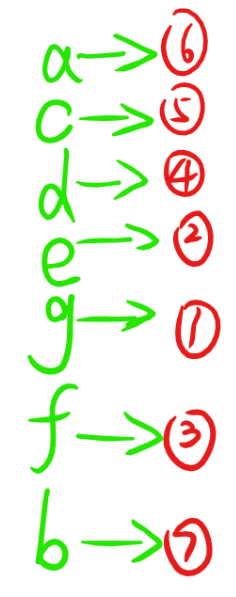 a→⑥
c→⑤
d→④
e→②
g→①
f→③
b→⑦